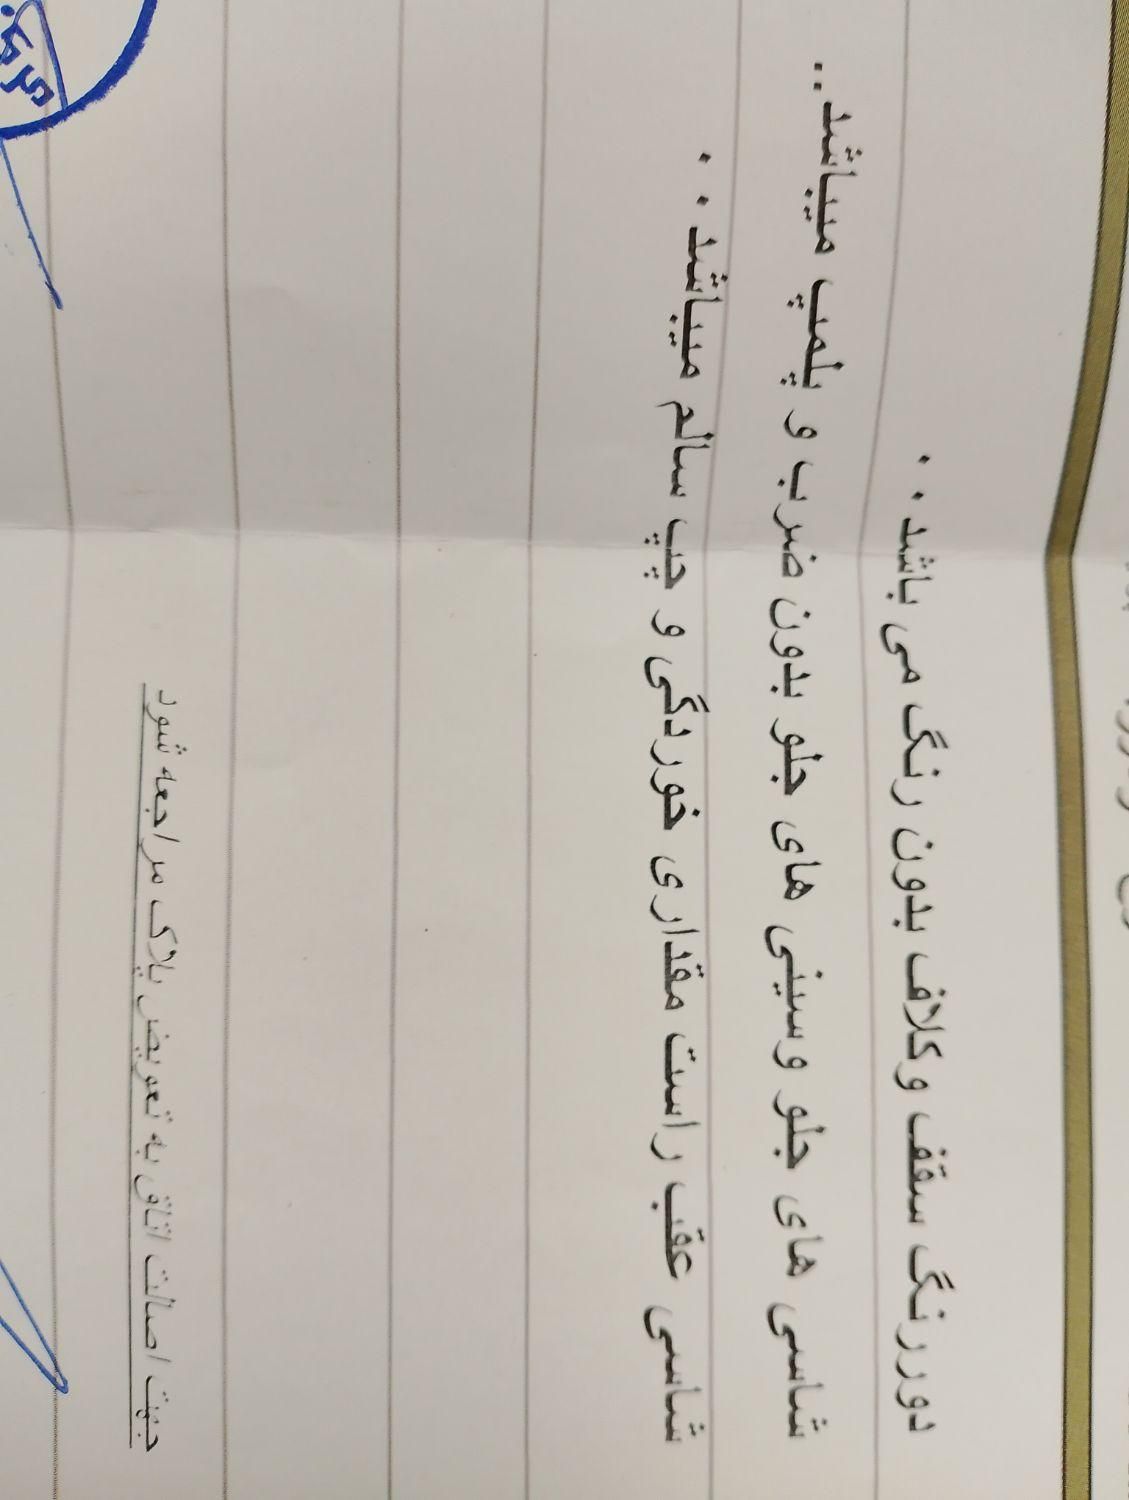 دوررنگ سقف وکلاف بدون رنگ می باشد..
شاسی های جلو وسینی های جلو بدون ضرب و پلمپ میباشد..
شاسی عقب راست مقداری خوردگی و چپ سالم میباشد..
جهت اصالت اتاق به تعویض پلاک مراجعه شود